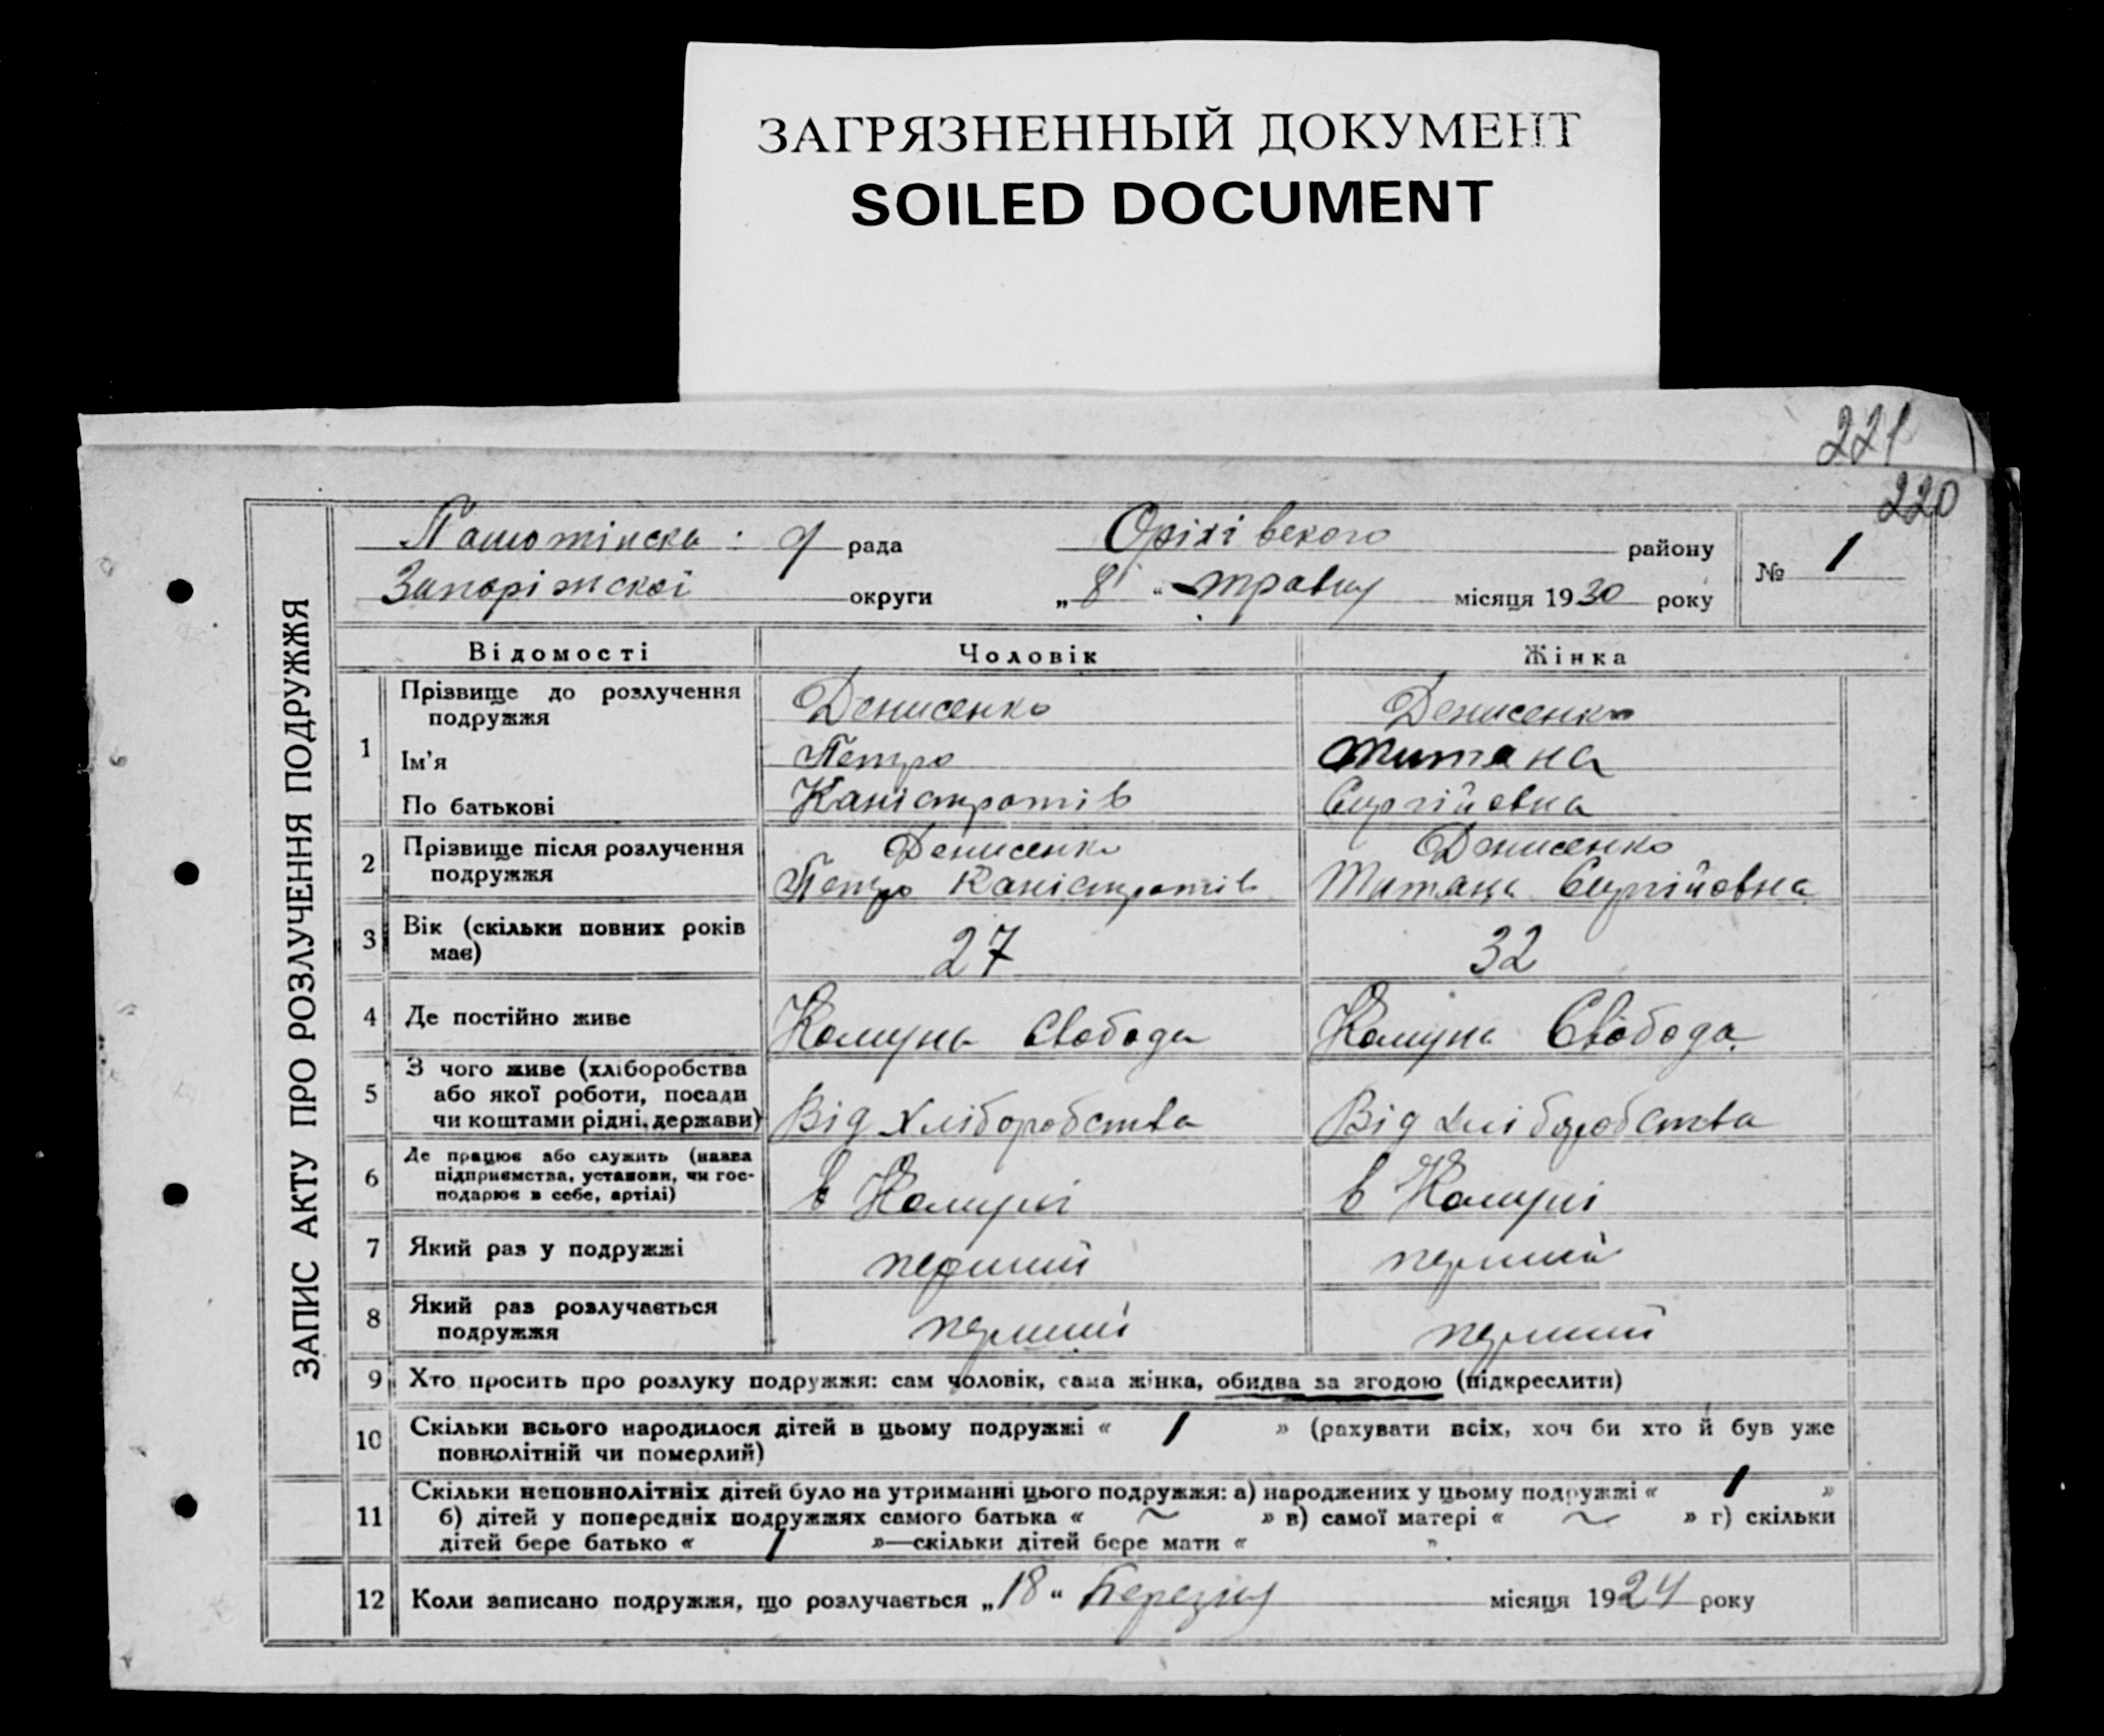 ЗАГРЯЗНЕННЫЙ ДОКУМЕНТ
SOILED DOCUMENT
221
220
ЗАПИС АКТУ ПРО РОЗЛУЧЕННЯ ПОДРУЖЖЯ
рада Оріхівского району
Запоріжскої округи „ 8 “ травня місяця 1930 року
№ 1
Відомості Чоловік Жінка
1 Прізвище до розлучення подружжя Денисенко Денисенко
Ім'я Петро Титяна
По батькові Каністратів Сергійовна
2 Прізвище після розлучення подружжя Денисенко Петро Каністратів Денисенко Титяна Сергійовна
3 Вік (скільки повних років має) 27 32
4 Де постійно живе Комуна Свобода Комуна Свобода
5 З чого живе (хліборобства або якої роботи, посади чи коштами рідні, держави) Від хліборобства Від хліборобства
6 Де працює або служить (назва підприємства, установи, чи господарює в себе, артілі) в Комуні в Комуні
7 Який раз у подружжі перший перший
8 Який раз розлучається подружжя перший перший
9 Хто просить про розлуку подружжя: сам чоловік, сама жінка, обидва за згодою (підкреслити)
10 Скільки всього народилося дітей в цьому подружжі « 1 » (рахувати всіх, хоч би хто й був уже
повнолітній чи померлий)
11 Скільки неповнолітніх дітей було на утриманні цього подружжя: а) народжених у цьому подружжі « 1 »
б) дітей у попередніх подружжях самого батька « ~ » в) самої матері « ~ » г) скільки
дітей бере батько « 1 »—скільки дітей бере мати « »
12 Коли записано подружжя, що розлучається „ 18 “ березня місяця 1924 року